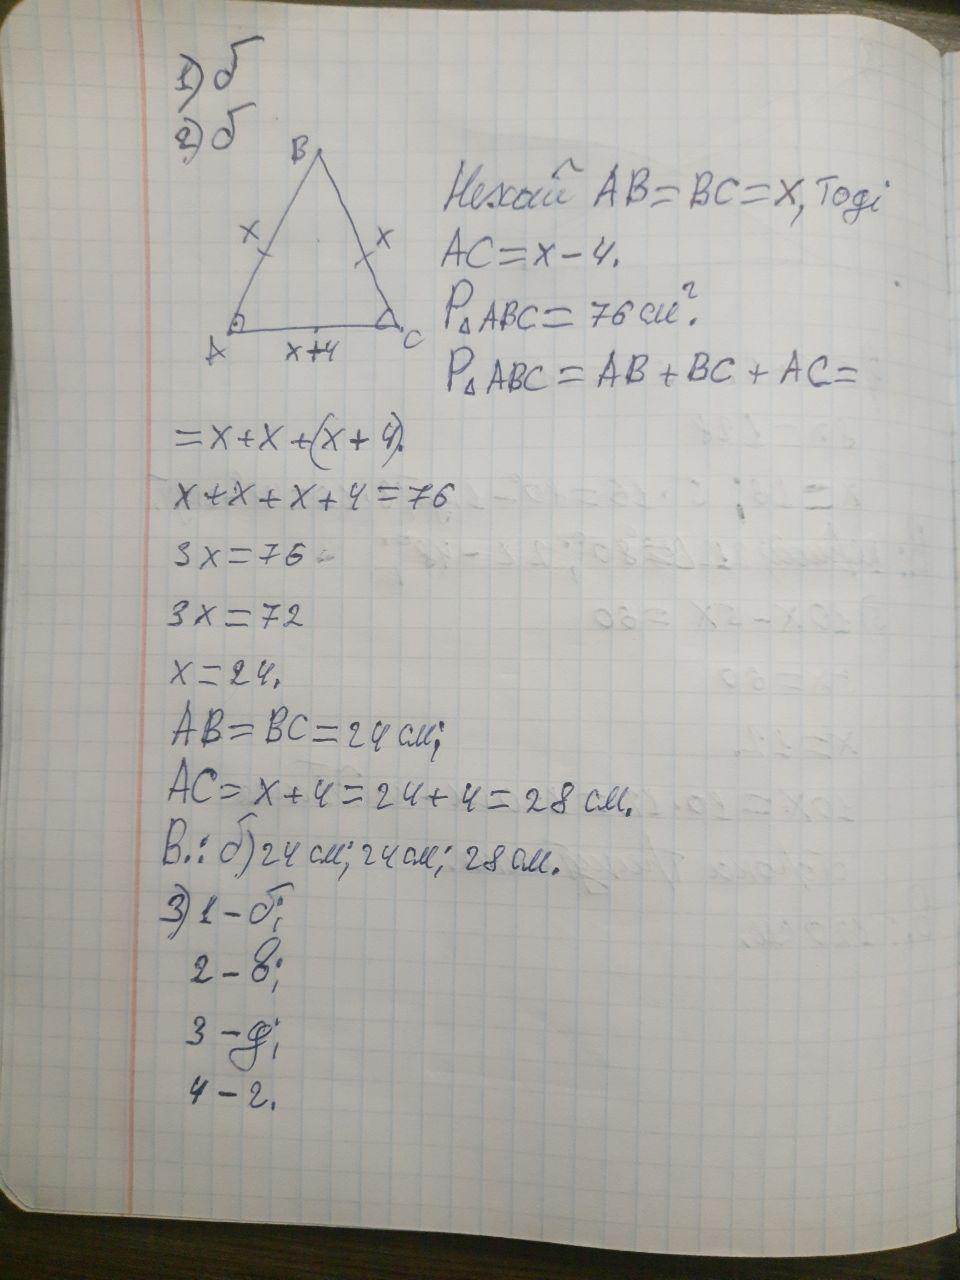 1) б
2) б
B
x
x
A
x+4
C
Нехай AB = BC = x, Тоді
AC = x - 4.
P△ABC = 76 см².
P△ABC = AB + BC + AC =
= x + x + (x + 4).
x + x + x + 4 = 76
3x = 76 -
3x = 72
x = 24.
AB = BC = 24 см;
AC = x + 4 = 24 + 4 = 28 см.
В.: б) 24 см; 24 см; 28 см.
3) 1 - б;
2 - в;
3 - д;
4 - г.